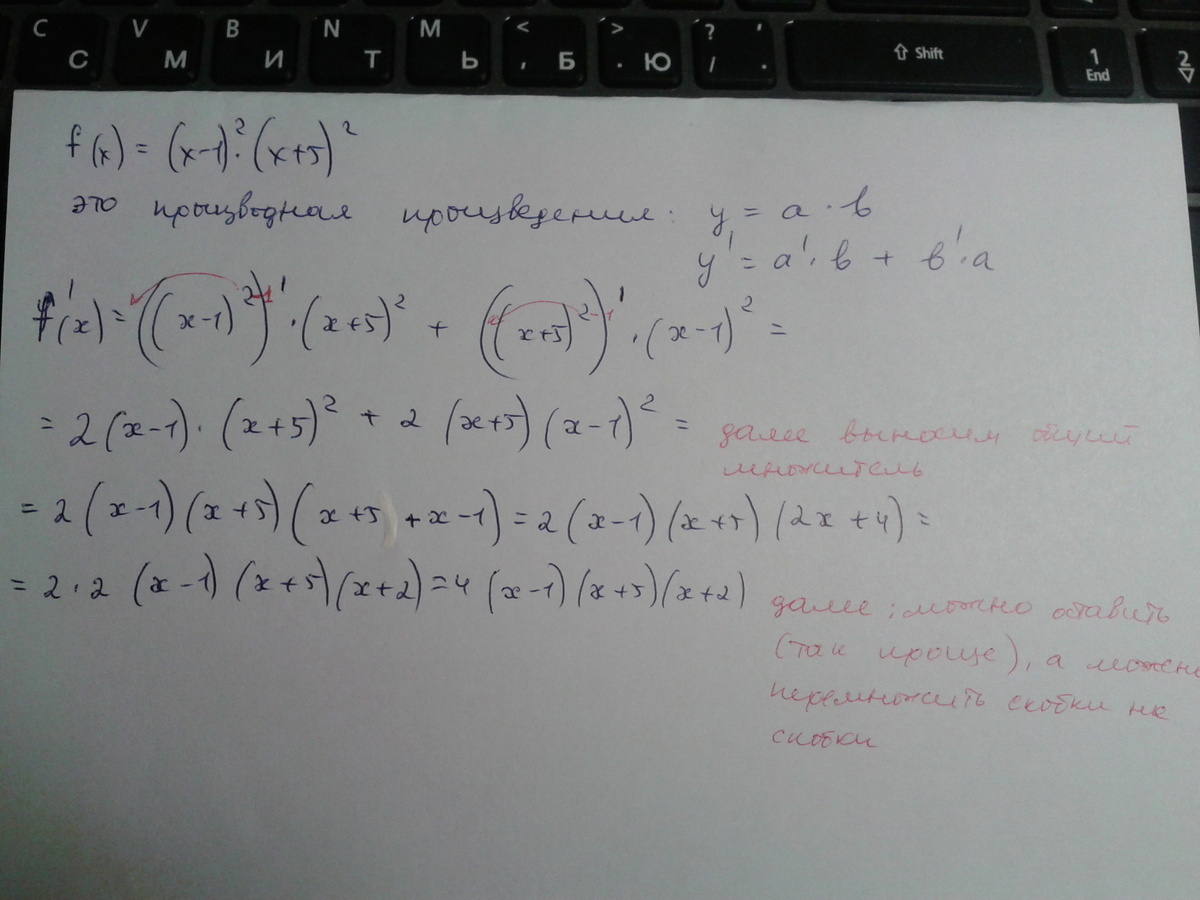 C V B N M < > ? '
С М И Т Ь , Б . Ю / . ⇧ Shift 1 End 2
f(x) = (x-1)²·(x+5)²
это производная произведения: y = a · b
y' = a'·b + b'·a
f'(x) = ((x-1)²⁻¹)'·(x+5)² + ((x+5)²⁻¹)'·(x-1)² =
= 2(x-1)·(x+5)² + 2(x+5)(x-1)² = далее выносим общий
множитель
= 2(x-1)(x+5)(x+5)+x-1) = 2(x-1)(x+5)(2x+4) =
= 2·2(x-1)(x+5)(x+2) = 4(x-1)(x+5)(x+2)
далее: можно оставить
(так проще), а можно
перемножить скобки на
скобки